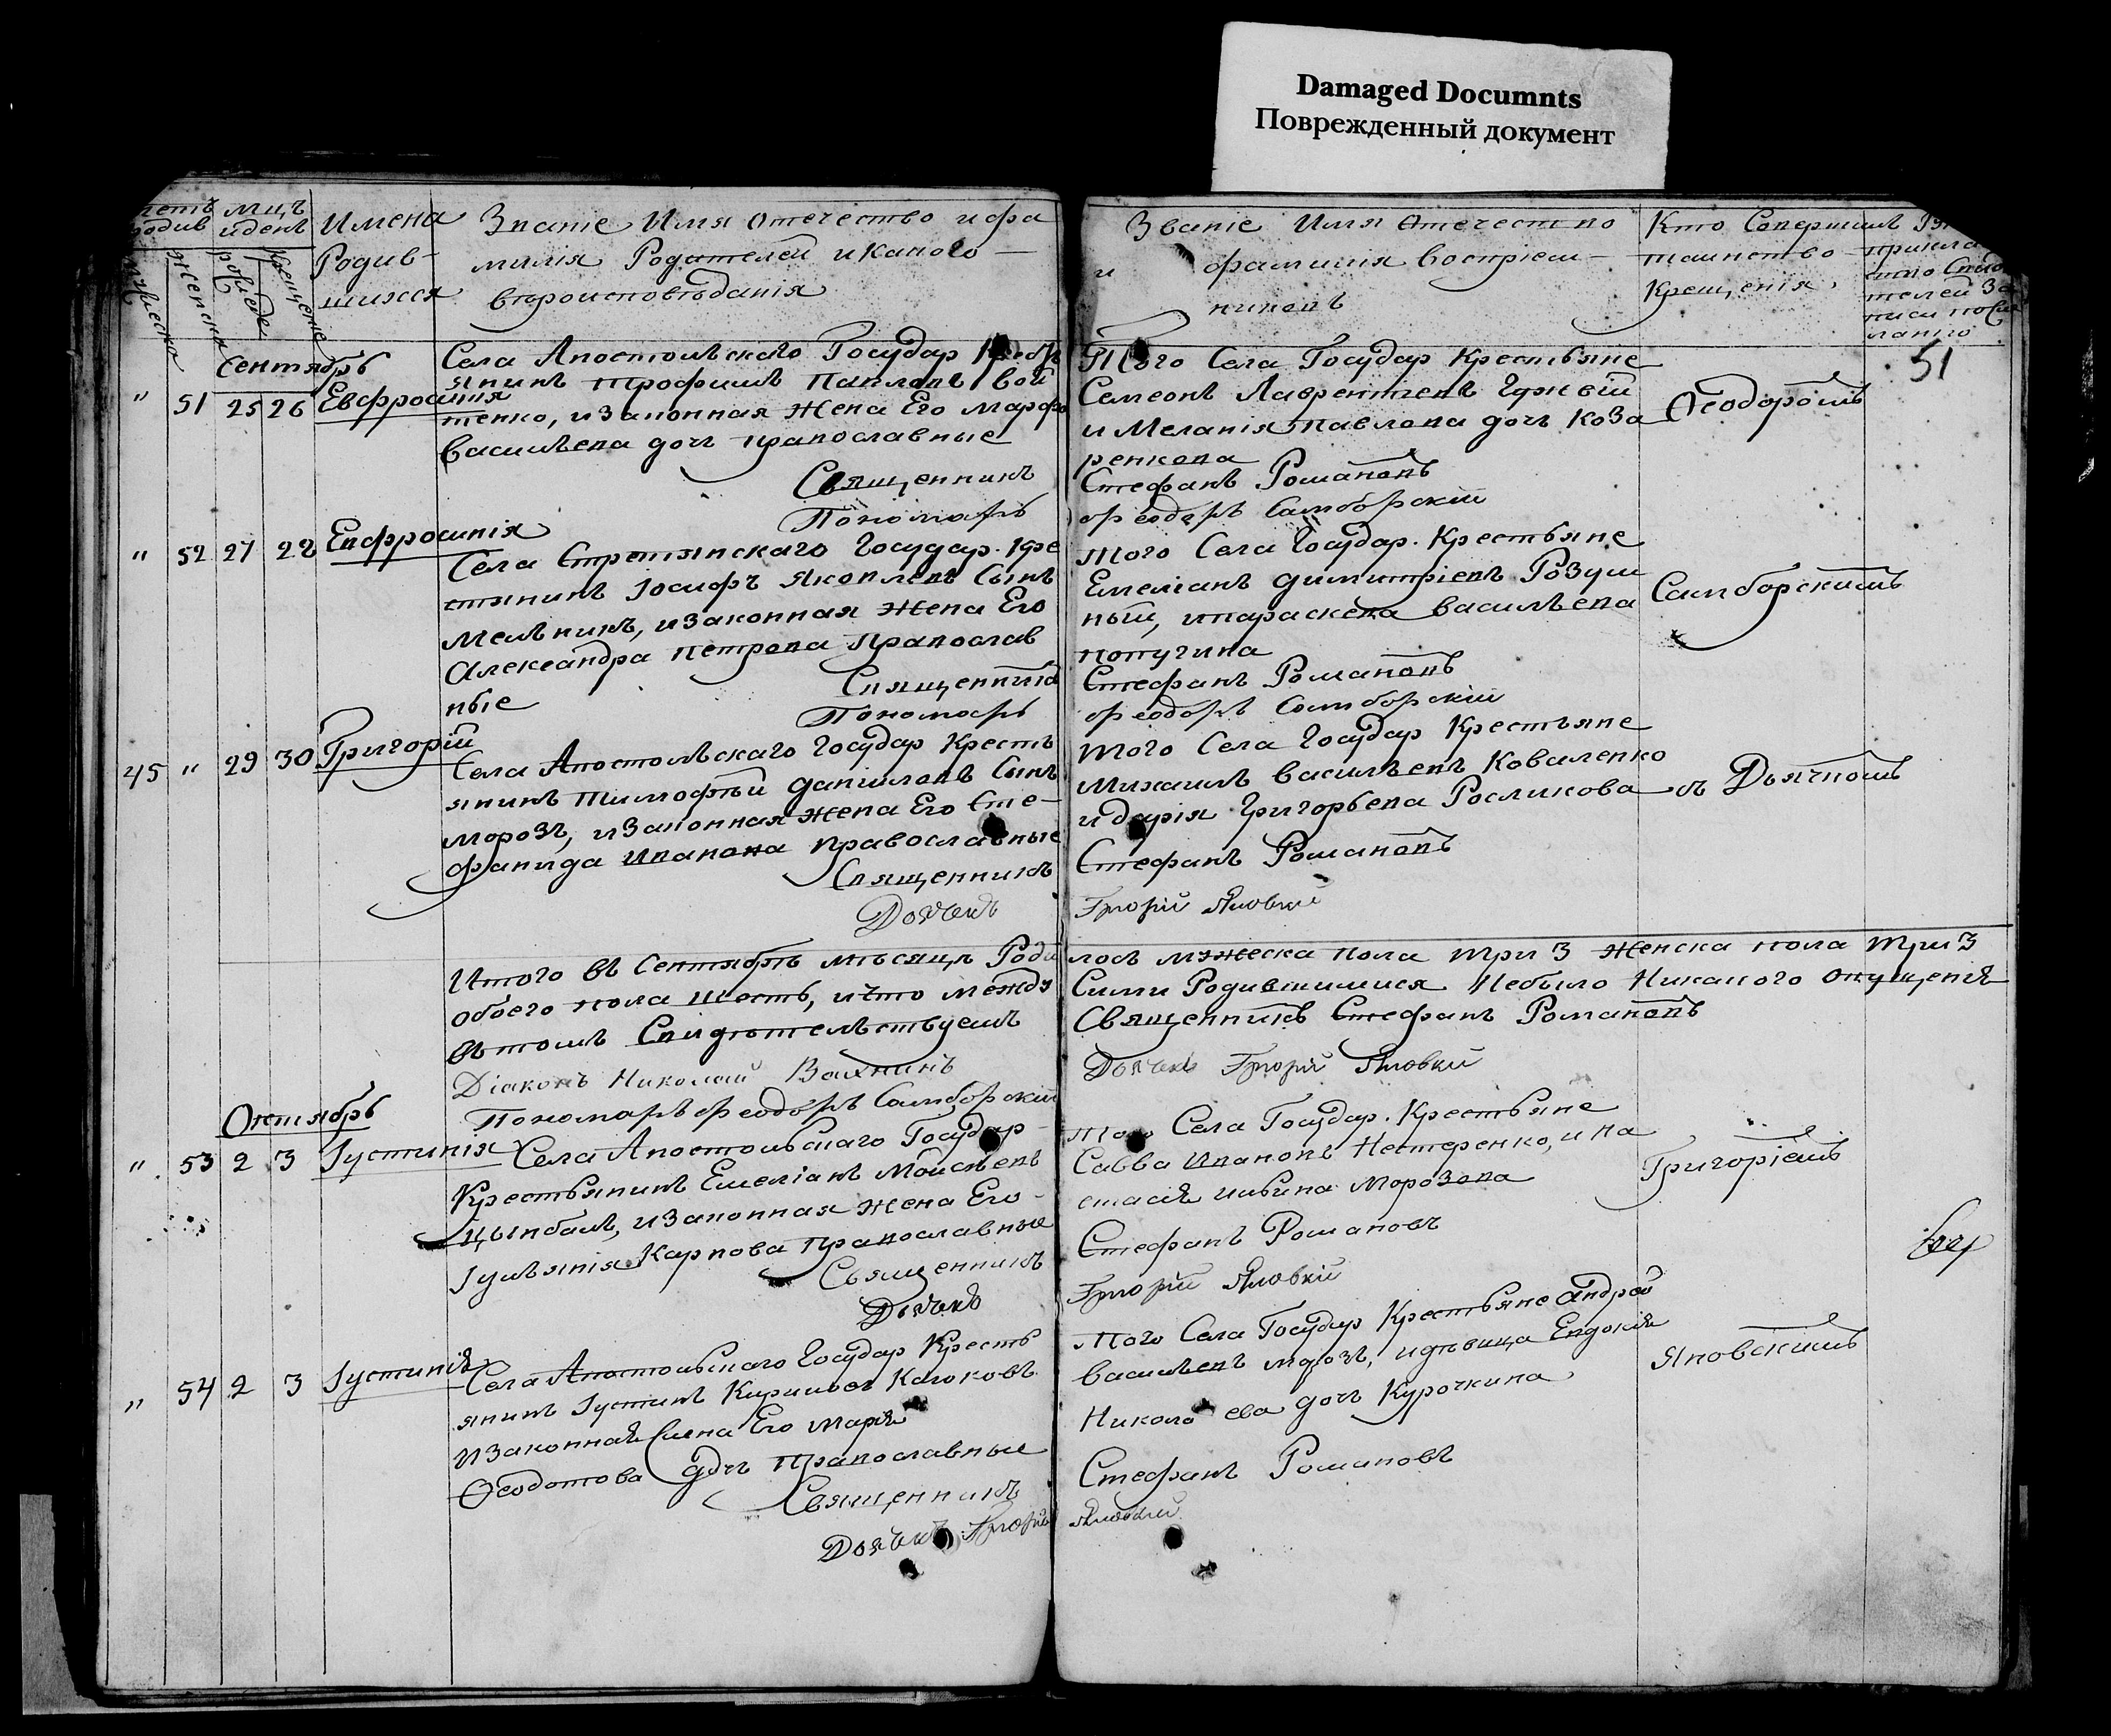 Damaged Documnts
Поврежденный документ
мцъ
и день
Имена
Родив-
шихся
Званіе Имя Отечество и фа
милія Родителей и каково
вѣроисповѣданія
Званіе Имя Отечество
и фамилія воспріем-
никовъ
Кто Совершилъ
таинство
Крещенія
51
Сентябрь
" 51 25 26 Евфросинія
Села Апостольскаго Государ Крест
янинъ Трофимъ Павловъ Вой
тенко, и законная жена Его Марфа
Васильева дочъ православные
Священникъ
Пономарь
Того Села Государ Крестьяне
Симеонъ Лаврентіевъ
и Меланія Павлова дочъ Коза
ренкова
Стефанъ Романовъ
Феодоръ Самборскій
Ѳеодоромъ
" 52 27 28 Евфросинія
Села Стретинскаго Государ. Кре
стянинъ Іосифъ Яковлевъ Сынъ
Мельникъ, и законная жена Его
Александра Петрова Православ
ные
Священникъ
Пономарь
того Села Государ. Крестьяне
Емеліанъ Димитріевъ Розум
ный, и параскева Васильева
Стефанъ Романовъ
Феодоръ Самборскій
Самборскимъ
45 " 29 30 Григорій
Села Апостольскаго Государ Кресть
янинъ Тимофѣй Даниловъ Сынъ
Морозъ, и законная жена Его Сте-
фанида Иванова православные
Священникъ
Дьячекъ
того Села Государ Крестьяне
Михаилъ Васильевъ Коваленко
и Дарія Григорьева Росликова
Стефанъ Романовъ
Григорій Яновскій
съ Дьячкомъ
Итого въ Сентябрѣ мѣсяцѣ Роди лось мужеска пола три 3 женска пола три 3
обоего пола шесть, и что между Сими Родившимися Небыло Никакого опущенія
въ томъ Свидѣтельствуемъ Священникъ Стефанъ Романовъ
Діаконъ Николай Дьячекъ Григорій Яновскій
Пономарь Феодоръ Самборскій
Октябрь
" 53 2 3 Іустинія
Села Апостольскаго Государ-
Крестьянинъ Емеліанъ Мойсѣевъ
Цымбалъ, и законная жена Его
Іуліянія Карпова Православные
Священникъ
Дьячекъ
того Села Государ. Крестьяне
Савва Ивановъ Нестеренко, и На
стасія Ильина Морозова
Стефанъ Романовъ
Григорій Яновскій
Григоріемъ
" 54 2 3 Іустинія
Села Апостольскаго Государ Кресть
янинъ Іустинъ Кириловъ
И законная жена Его Марія
Ѳеодотова дочъ Православные
Священникъ
Дьячекъ Григорій
того Села Государ Крестьяне Андрей
Васильевъ Морозъ, и дѣвица Евдокія
Николаева дочъ Курочкина
Стефанъ Романовъ
Яновскій
Яновскимъ